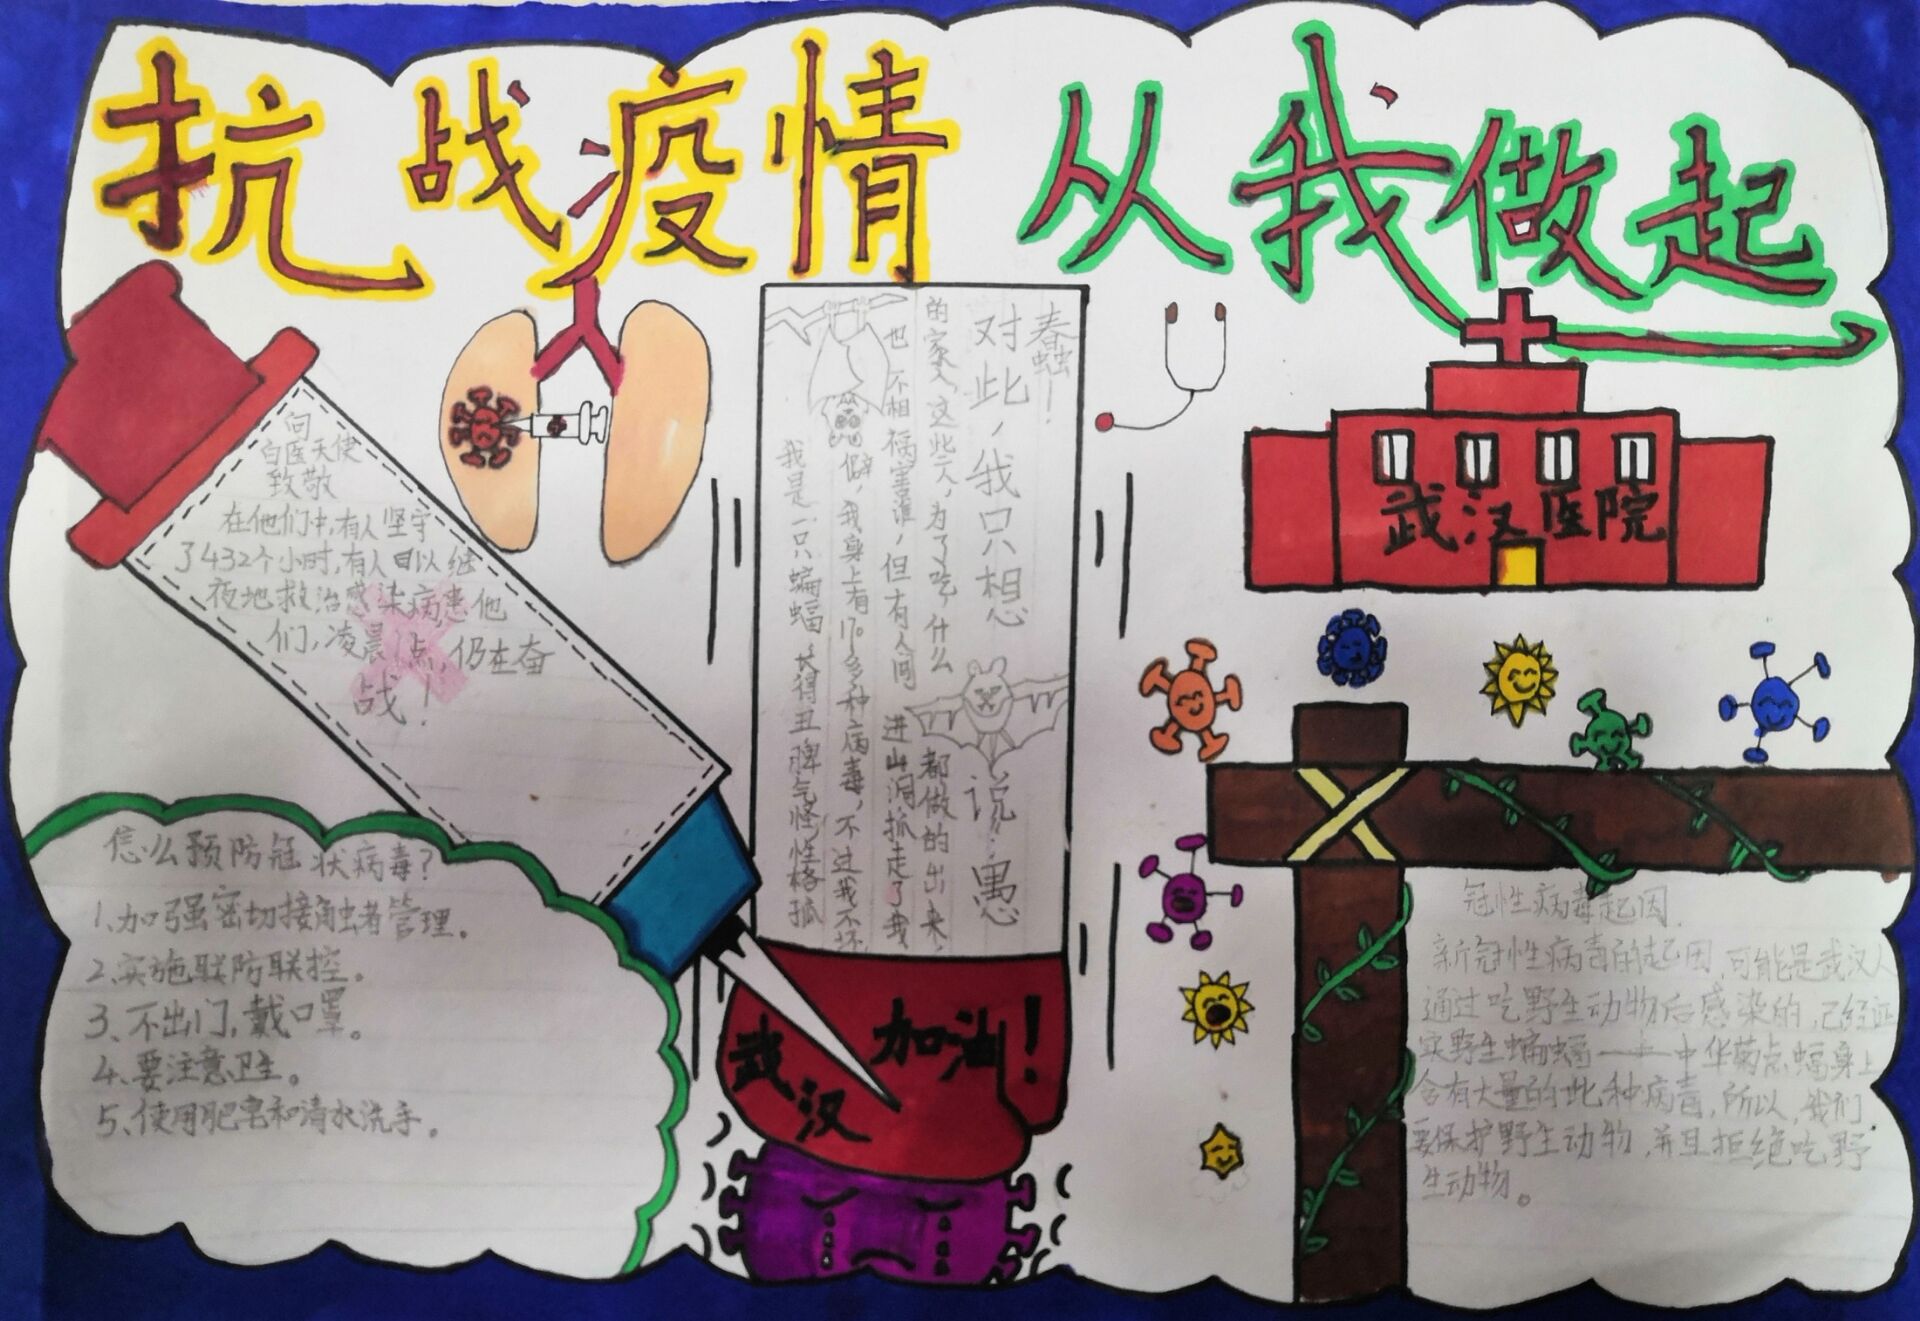 抗战疫情 从我做起
向
白医天使
致敬
在他们中,有人坚守
了432个小时,有人日以继
夜地救治感染病患他
们,凌晨1点,仍在奋
战!
我是一只蝙蝠,长得丑脾气怪,性格孤
僻,我身上有170多种病毒,不过我不坏
也不想祸害谁,但有人间进山洞抓走了我
的家人,这些人,为了吃,什么都做的出来,
对此,我只想说:愚
蠢!
武汉
加油!
武汉医院
怎么预防冠状病毒?
1、加强密切接触者管理。
2、实施联防联控。
3、不出门,戴口罩。
4、要注意卫生。
5、使用肥皂和清水洗手。
冠性病毒起因.
新冠性病毒的起因,可能是武汉人
通过吃野生动物后感染的,已经证
实野生蝙蝠——中华菊点蝠身上
含有大量的此种病毒,所以,我们
要保护野生动物,并且拒绝吃野
生动物。